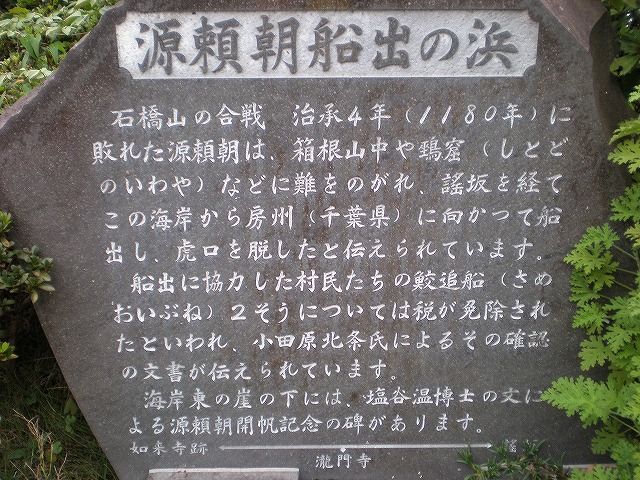 源頼朝船出の浜
石橋山の合戦　治承4年（1180年）に
敗れた源頼朝は、箱根山中や鵐窟（しとど
のいわや）などに難をのがれ、謡坂を経て
この海岸から房州（千葉県）に向かつて船
出し、虎口を脱したと伝えられています。
船出に協力した村民たちの鮫追船（さめ
おいぶね）2そうについては税が免除され
たといわれ、小田原北条氏によるその確認
の文書が伝えられています。
海岸東の崖の下には、塩谷温博士の文に
よる源頼朝開帆記念の碑があります。
如来寺跡
瀧門寺